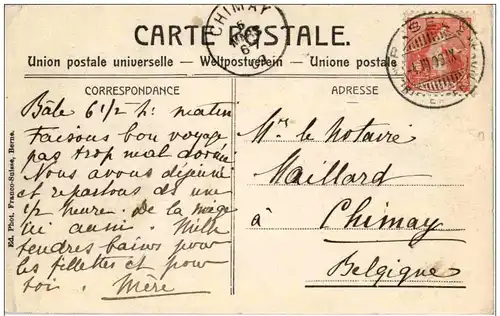 CARTE POSTALE.
CHIMAY
Union postale universelle — Weltpostverein — Unione postale
CORRESPONDANCE
ADRESSE
Bâle 6 1/2 h: matin
Faisons bon voyage
pas trop mal dormi
Nous avous déjeuné
et repartons ds une
1/2 heure. De la neige
ici aussi. Mille
tendres baisers pour
les fillettes et pour
toi. Mère
Mr. le Notaire
Maillard
à
Chimay
Belgique
Ed. Phot. Franco-Suisse, Berne.